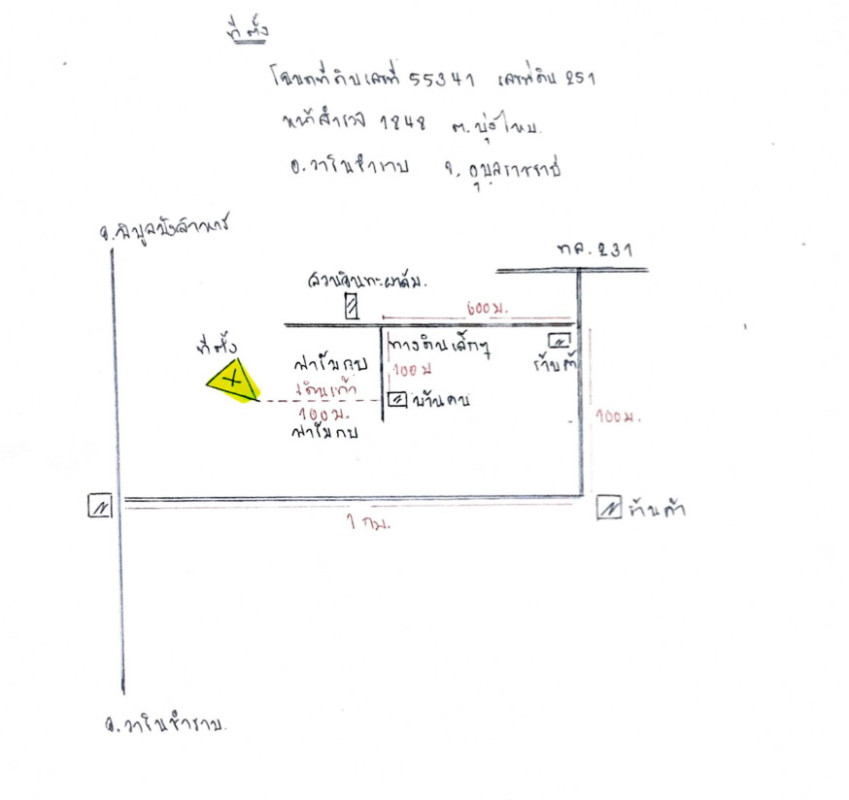 ที่ตั้ง
โฉนดที่ดินเลขที่ 55341 เลขที่ดิน 251
หน้าสำรวจ 1848 ต.บุ่งไหม
อ.วารินชำราบ จ.อุบลราชธานี
อ.พิบูลมังสาหาร
ทล.231
สวนอินทผาลัม.
600ม.
ที่ตั้ง
ทางดินเล็กๆ
ฟาร์มกบ
100ม
ร้านค้า
เดินเท้า
100ม.
บ้านคน
ฟาร์มกบ
100ม.
ร้านค้า
1 กม.
อ.วารินชำราบ.